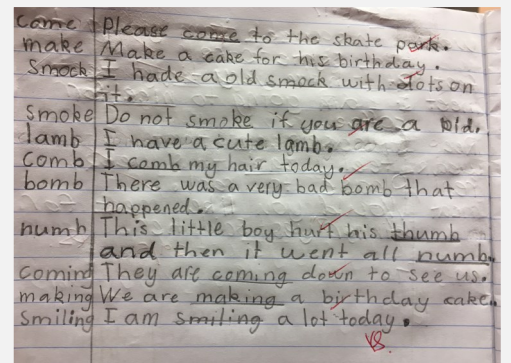 Come Please come to the skate park.
make Make a cake for his birthday.
Smock I hade a old smock with dots on
it.
smoke Do not smoke if you are a old.
lamb I have a cute lamb.
comb I comb my hair today.
bomb There was a very bad bomb that
happened.
numb This little boy hurt his thumb
and then it went all numb.
coming They are coming down to see us.
making We are making a birthday cake.
smiling I am smiling a lot today.